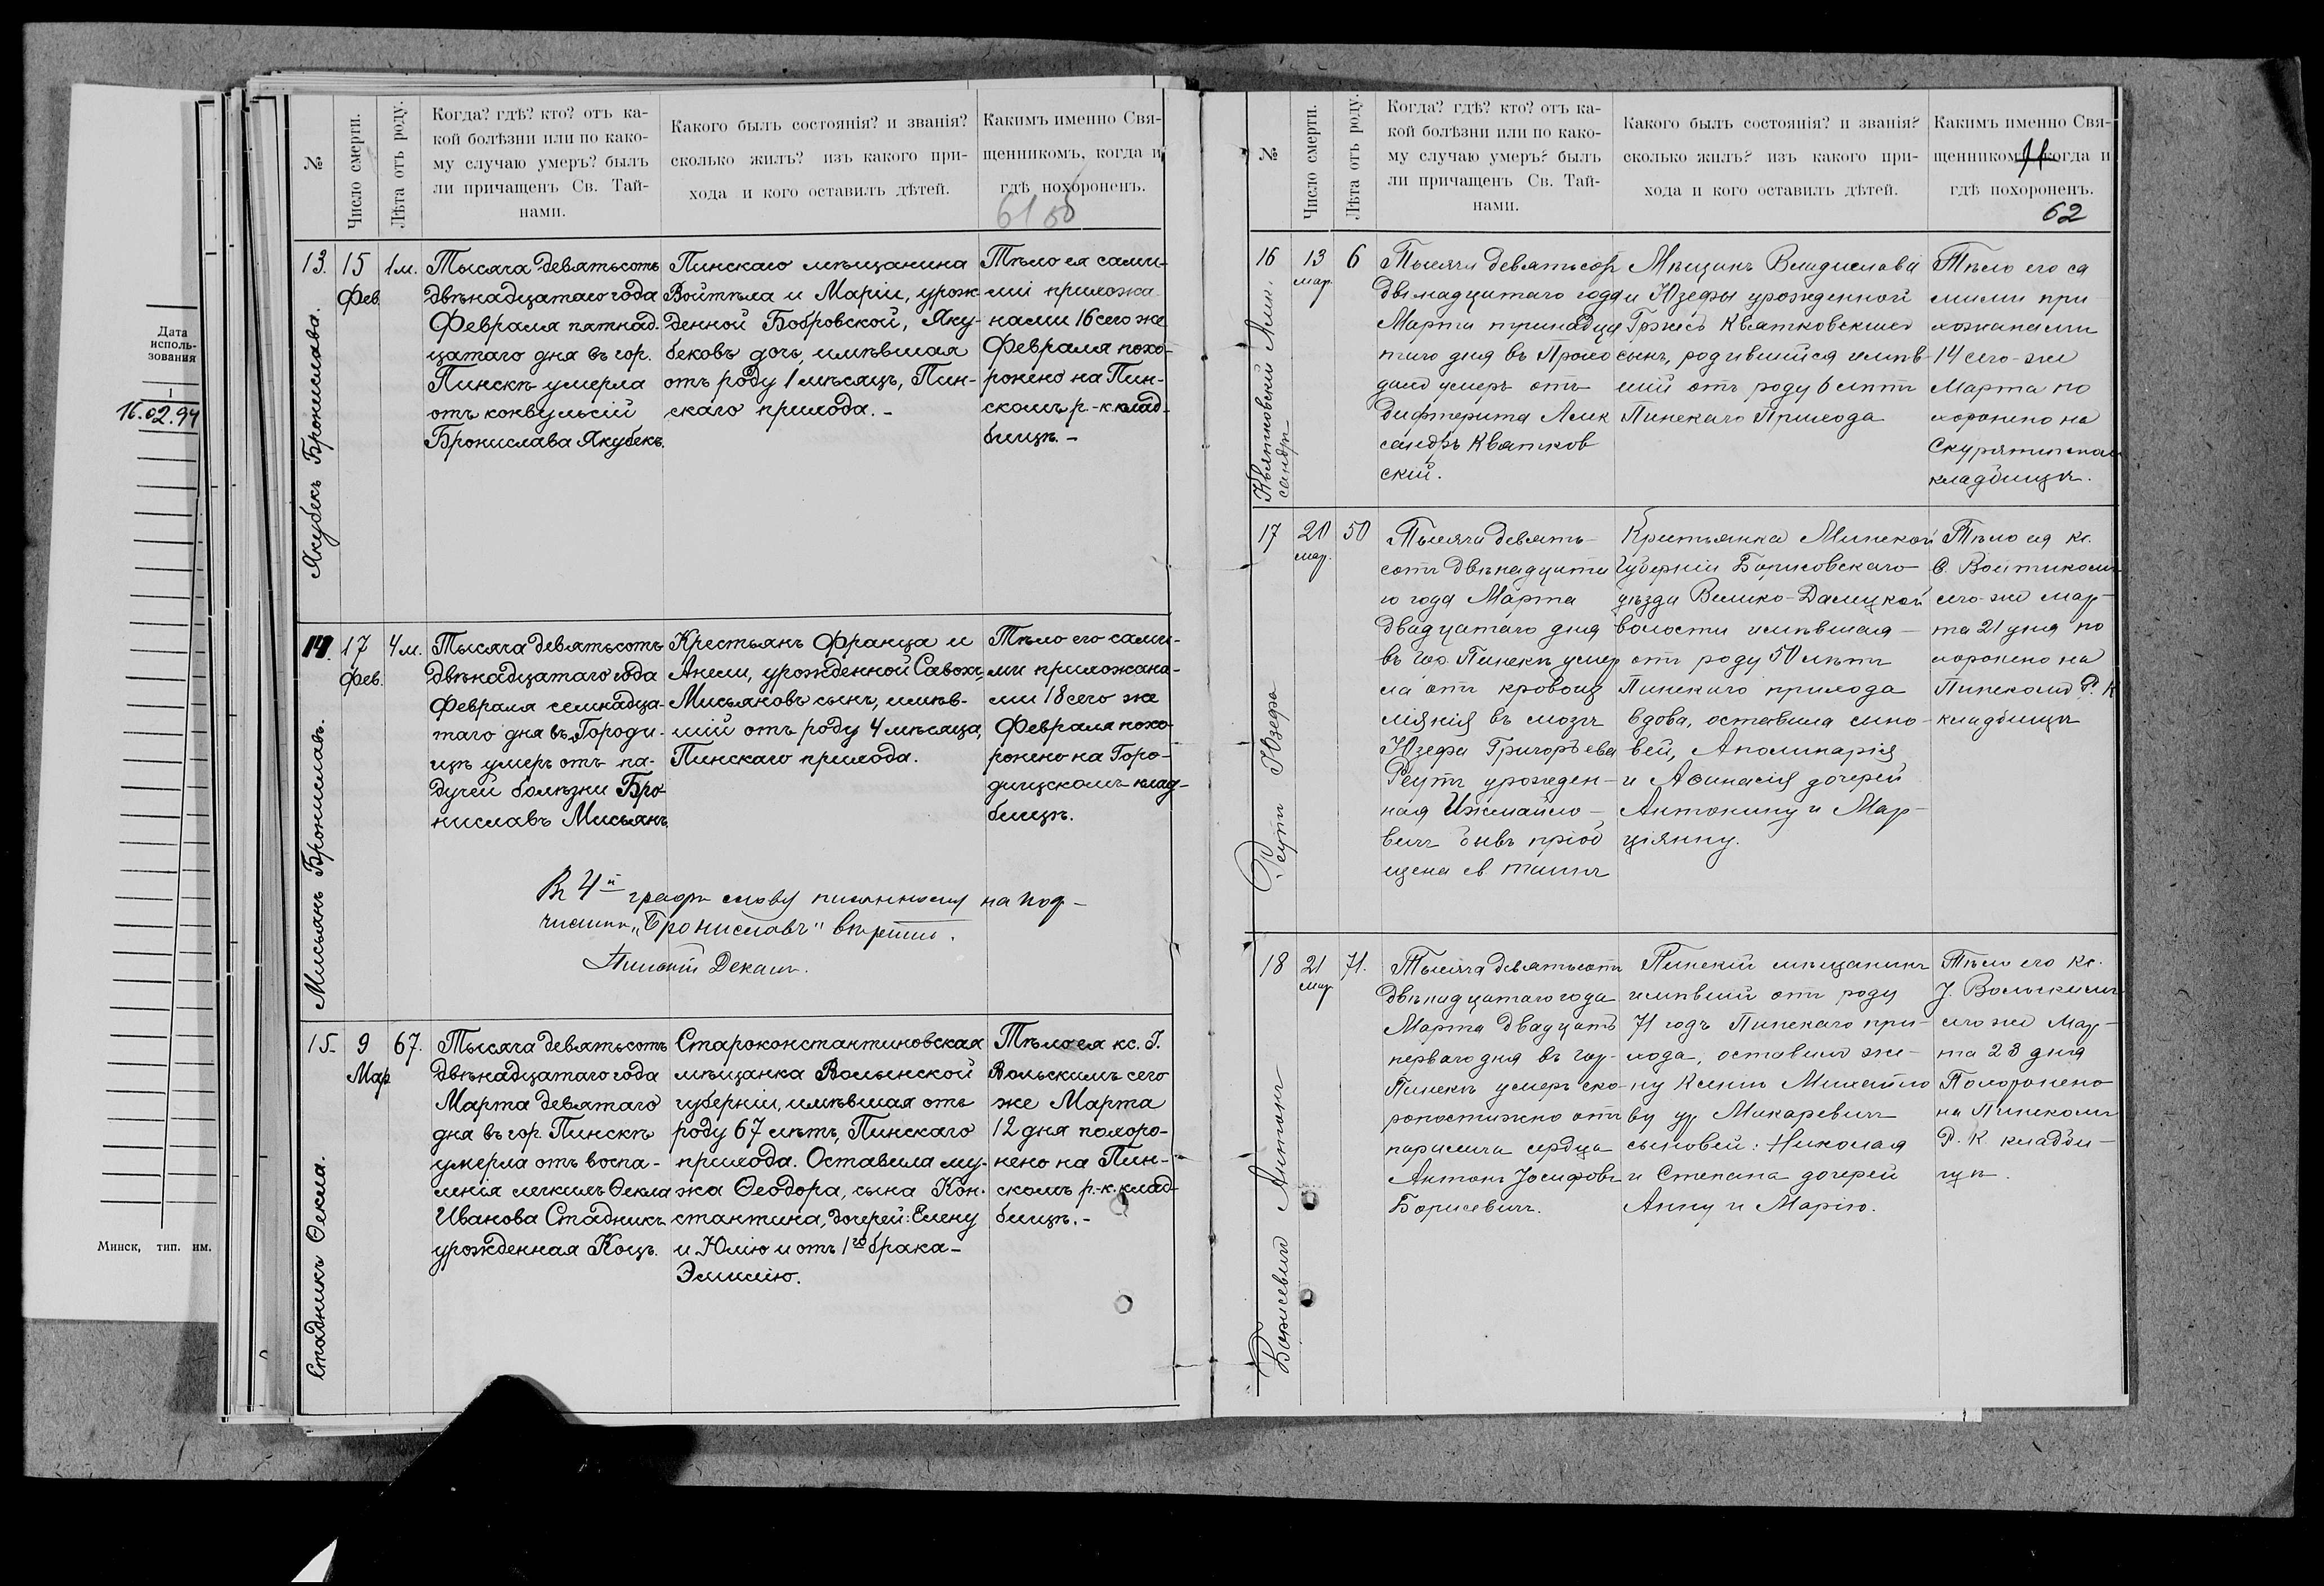 Дата
исполь-
зования
1
16.02.94
Минск, тип. им.
№
Число смерти.
Лѣта отъ роду.
Когда? гдѣ? кто? отъ ка-
кой болѣзни или по како-
му случаю умеръ? былъ
ли причащенъ Св. Тай-
нами.
Какого былъ состоянія? и званія?
сколько жилъ? изъ какого при-
хода и кого оставилъ дѣтей.
Какимъ именно Свя-
щенникомъ, когда и
гдѣ похороненъ.
61
13.
15
Фев.
1 м.
Якубекъ Бронислава.
Тысяча девятьсотъ
двѣнадцатаго года
Февраля пятнад-
цатаго дня въ гор.
Пинскѣ умерла
отъ конвульсій
Бронислава Якубекъ.
Пинскаго мѣщанина
Войтѣла и Маріи, урож-
денной Бобровской, Яку-
бековъ дочь, имѣвшая
отъ роду 1 мѣсяцъ, Пин-
скаго прихода. -
Тѣло ея сами-
ми прихожа-
нами 16 сего же
Февраля похо-
ронено на Пин-
скомъ р.-к. клад-
бищѣ. -
14.
17
Фев.
4 м.
Мисьянъ Брониславъ.
Тысяча девятьсотъ
двѣнадцатаго года
Февраля семнадца-
таго дня въ Городи-
щѣ умеръ отъ па-
дучей болѣзни Бро-
ниславъ Мисьянъ.
Крестьянъ Франца и
Анели, урожденной Савохъ,
Мисьяновъ сынъ, имѣв-
шій отъ роду 4 мѣсяца,
Пинскаго прихода.
Тѣло его сами-
ми прихожана-
ми 18 сего же
Февраля похо-
ронено на Горо-
дищскомъ клад-
бищѣ.
Въ 4й графѣ слову писанному на под-
чисткѣ „Брониславъ" вѣрить.
Пинскій Деканъ.
15.
9
Мар
67.
Стадникъ Ѳекла.
Тысяча девятьсотъ
двѣнадцатаго года
Марта девятаго
дня въ гор. Пинскѣ
умерла отъ воспа-
ленія легкихъ Ѳекла
Иванова Стадникъ
урожденная Коцъ.
Староконстантиновская
мѣщанка Волынской
губерніи, имѣвшая отъ
роду 67 лѣтъ, Пинскаго
прихода. Оставила му-
жа Ѳеодора, сына Кон-
стантина, дочерей: Елену
и Юлію и отъ 1го брака -
Эмилію.
Тѣло ея кс. І.
Вольскимъ сего
же Марта
12 дня похоро-
нено на Пин-
скомъ р.-к. клад-
бищѣ. -
№
Число смерти.
Лѣта отъ роду.
Когда? гдѣ? кто? отъ ка-
кой болѣзни или по како-
му случаю умеръ? былъ
ли причащенъ Св. Тай-
нами.
Какого былъ состоянія? и званія?
сколько жилъ? изъ какого при-
хода и кого оставилъ дѣтей.
Какимъ именно Свя-
щенникомъ, когда и
гдѣ похороненъ.
62
16
13
мар.
6
Квятковскій Алек.
сандръ
Тысяча девятьсот
двѣнадцатаго года
Марта тринадца
таго дня въ
умеръ отъ
дифтерита Алек
сандръ Квятков
скій.
Мѣщанъ Владислава
и Юзефы урожденной
Гржесь Квятковскихъ
сынъ, родившійся имѣв-
шій отъ роду 6 лѣтъ
Пинскаго Прихода
Тѣло его са
мими при
хожанами
14 сего-же
Марта по
хоронено на
кладбищѣ.
17
20
мар.
50
Реутъ Юзефа
Тысяча девять-
сотъ двѣнадцата
го года Марта
двадцатаго дня
въ гор. Пинскѣ умер
ла отъ кровоиз
ліянія въ мозгъ
Юзефа Григорьева
Реутъ урожден-
ная Ижмайло-
вичъ бывъ пріоб
щена св. таинъ
Крестьянка Минской
Губерніи Борисовскаго
уѣзда Велико-Долецкой
волости имѣвшая
отъ роду 50 лѣтъ
Пинскаго прихода
вдова, оставила сыно-
вей, Аполинарія
и Аѳанасія дочерей
Антонину и Мар-
ціянну.
Тѣло ея кс.
В. Войтикомъ
сего-же мар-
та 21 дня по
хоронено на
Пинскомъ Р. К
кладбищѣ
18
21
мар
71.
Борисевичъ Антонъ
Тысяча девятьсотъ
двѣнадцатаго года
Марта двадцать
перваго дня въ гор.
Пинскѣ умеръ ско-
ропостижно отъ
паралича сердца
Антонъ Іосифовъ
Борисевичъ.
Пинскій мѣщанинъ
имѣвшій отъ роду
71 годъ Пинскаго при-
хода, оставилъ же-
ну Михайло
ву ур. Макаревичъ
сыновей: Николая
и Степана дочерей
Анну и Марію.
Тѣло его кс.
І. Вольскимъ
сего же Мар-
та 23 дня
Похоронено
на Пинскомъ
Р. К кладби-
щѣ.